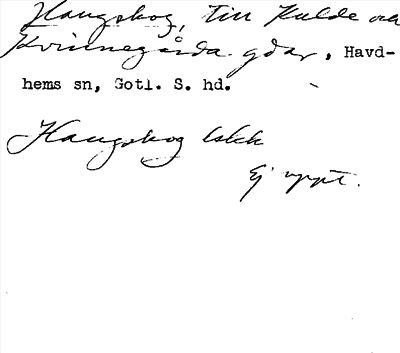 Haugskog, till Kulde och
Kvinnegårda gdar, Havd-
hems sn, Gotl. S. hd.
Haugskog
Ej uppt.